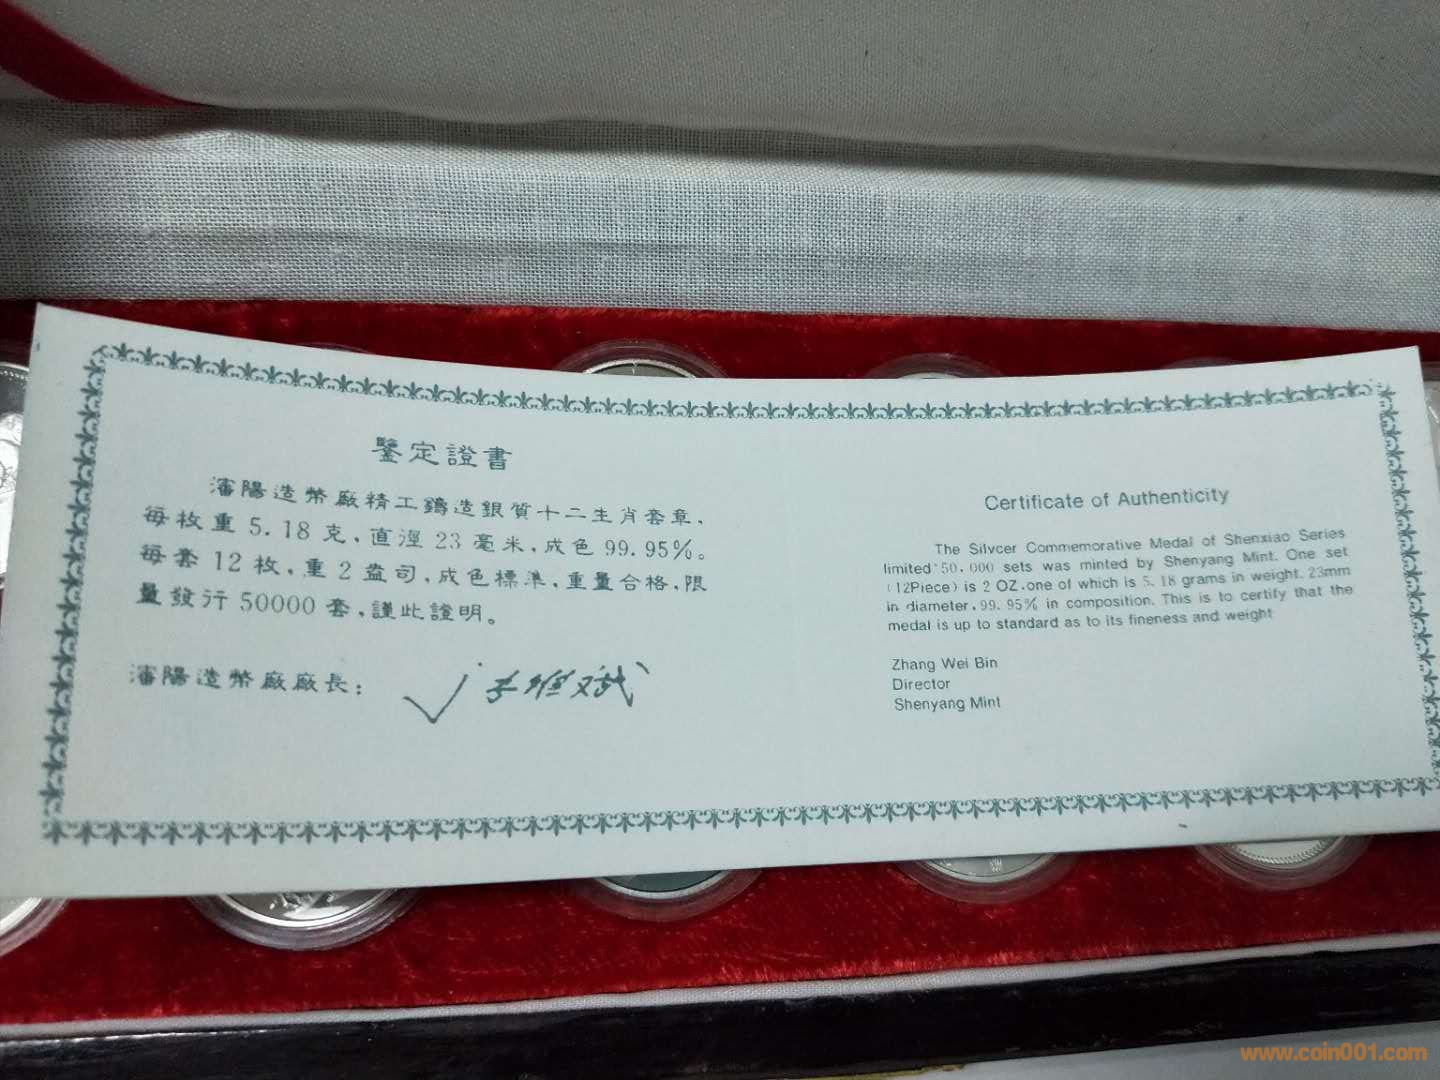 鑒定證書
瀋陽造幣廠精工鑄造銀質十二生肖套章，
每枚重5.18克，直涇23毫米，成色99.95%。
每套12枚，重2盎司，成色標準，重量合格，限
量發行50000套，謹此證明。
瀋陽造幣廠廠長：
Certificate of Authenticity
The Silvcer Commemorative Medal of Shenxiao Series
limited 50,000 sets was minted by Shenyang Mint. One set
(12Piece) is 2 OZ.one of which is 5.18 grams in weight. 23mm
in diameter, 99.95% in composition. This is to certify that the
medal is up to standard as to its fineness and weight
Zhang Wei Bin
Director
Shenyang Mint
www.coin001.com